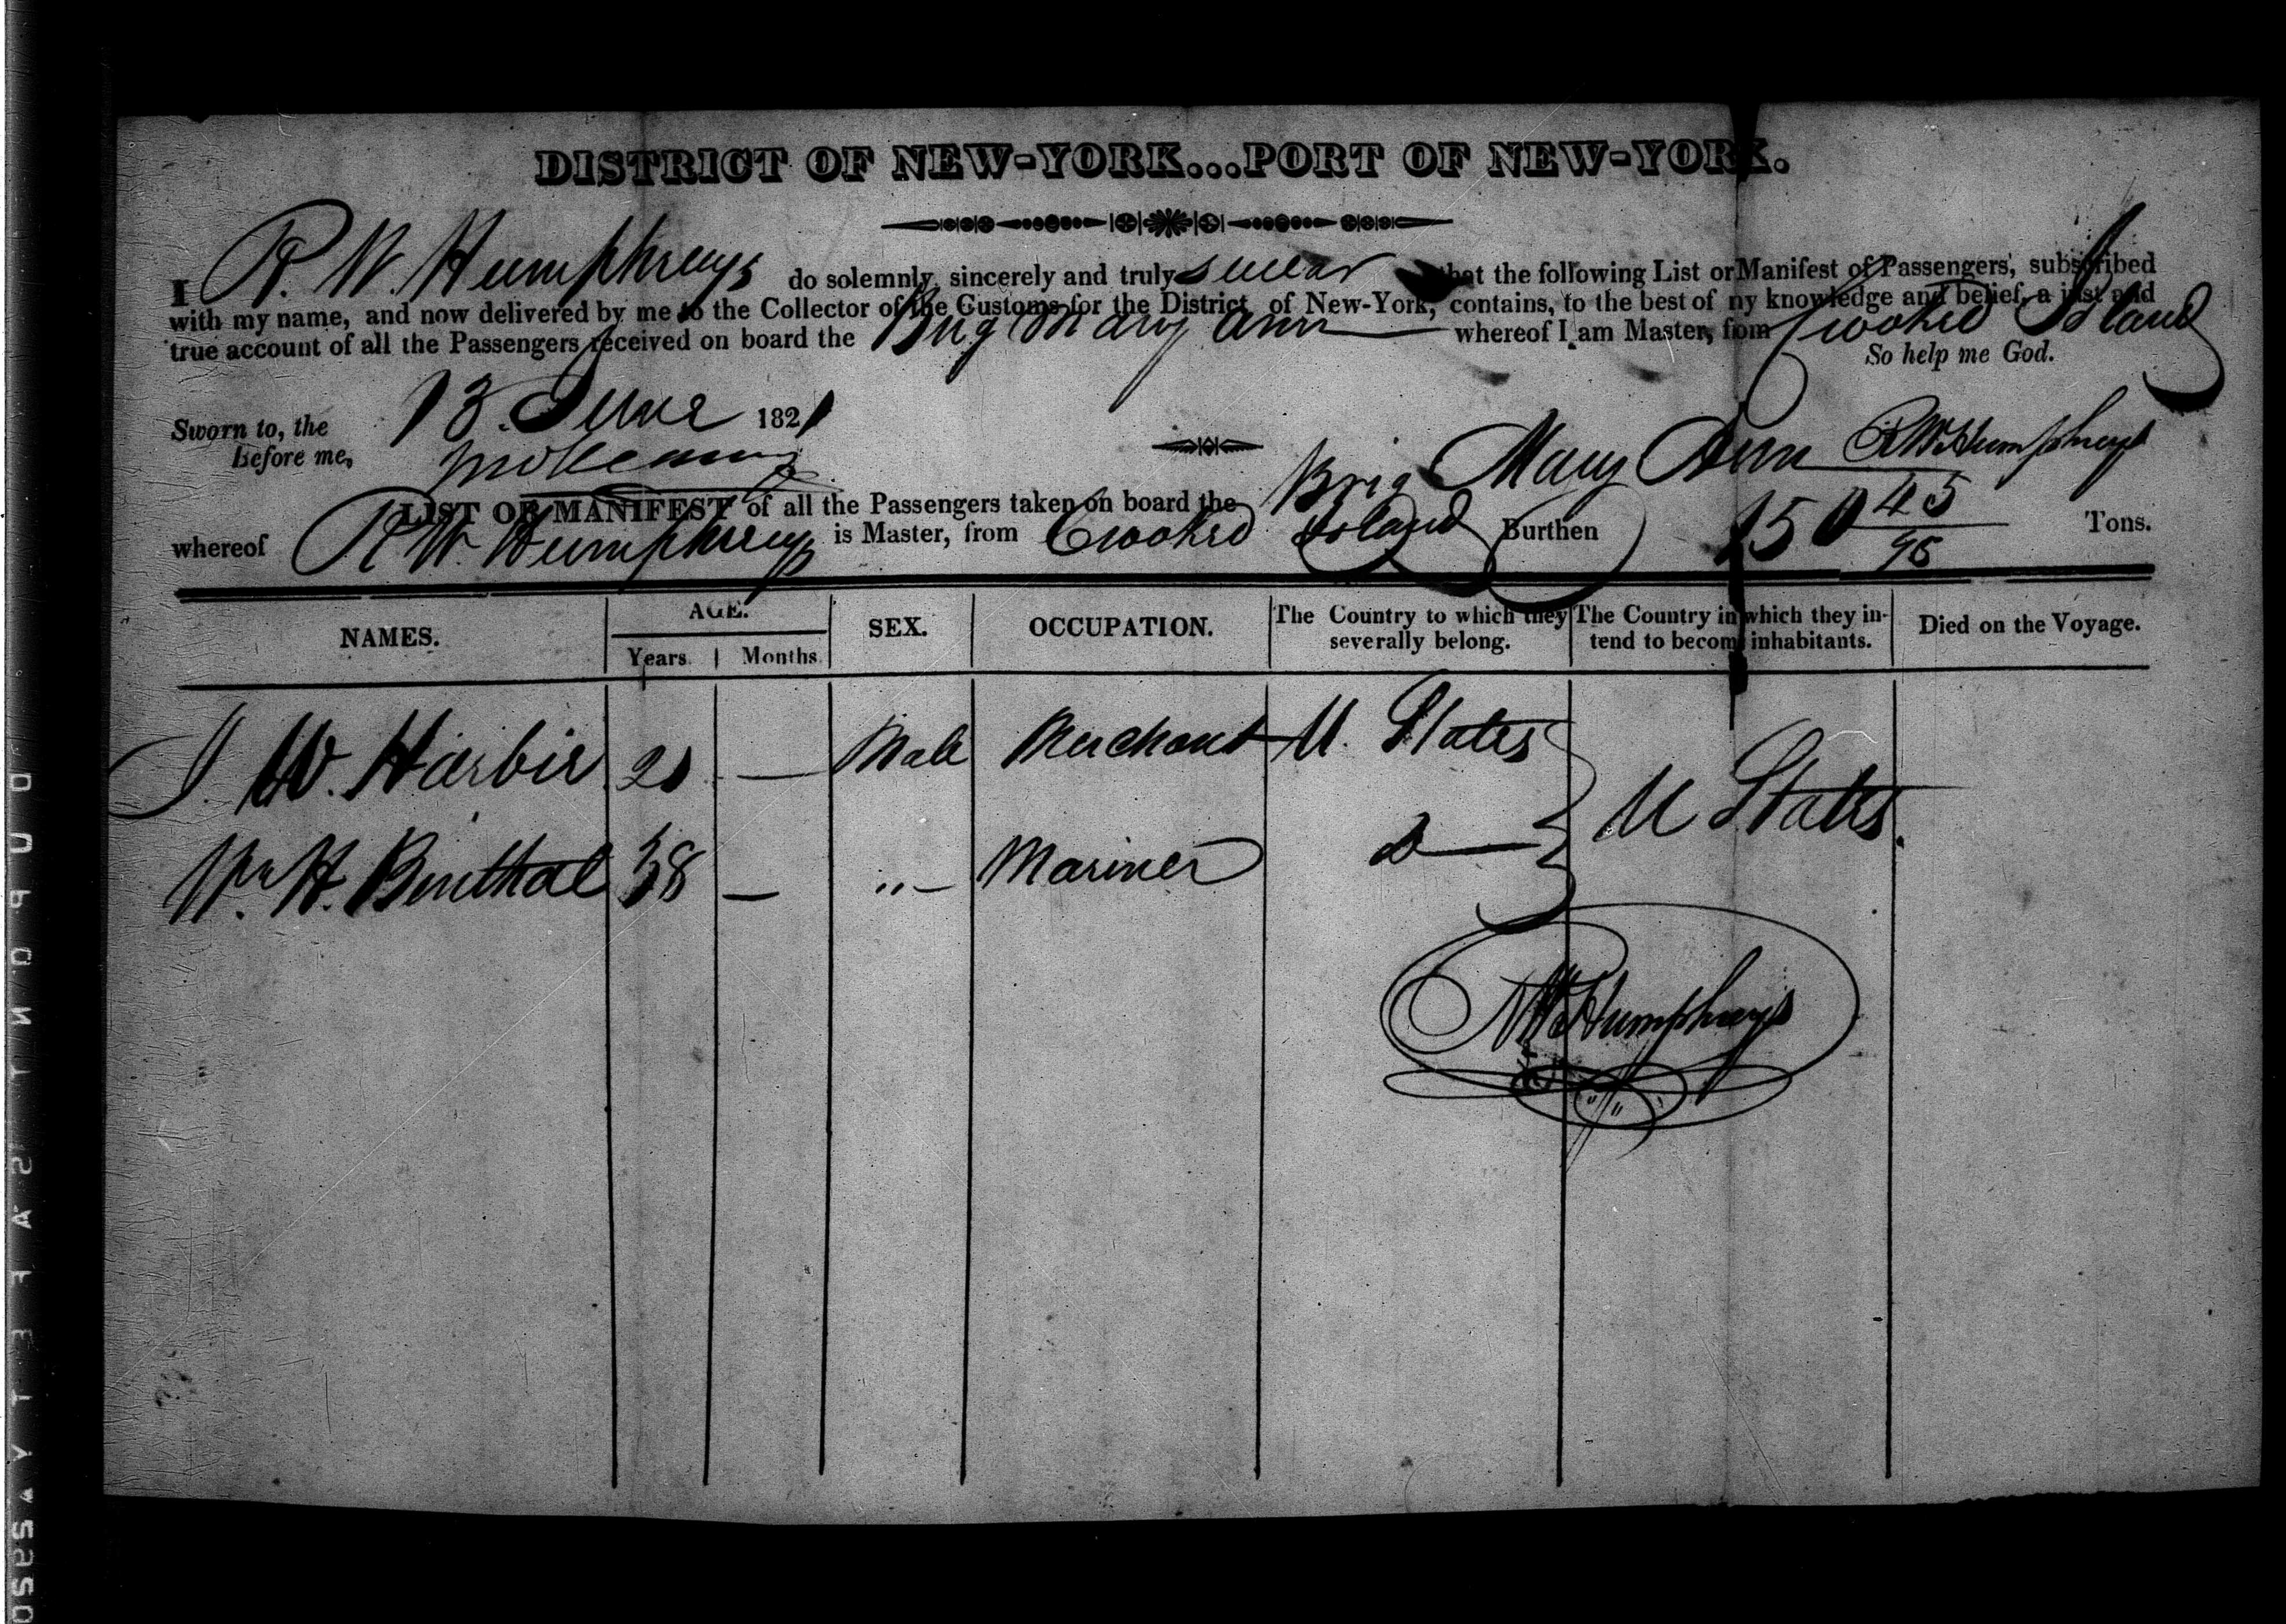 DISTRICT OF NEW-YORK...PORT OF NEW-YORK.
I R. W. Humphreys do solemnly, sincerely and truly swear that the following List or Manifest of Passengers, subscribed
with my name, and now delivered by me to the Collector of the Customs for the District of New-York, contains, to the best of my knowledge and belief, a just and
true account of all the Passengers received on board the Brig Mary Ann whereof I am Master, from Crooked Island
So help me God.
Sworn to, the 13 June 1821
Before me,
R W Humphreys
LIST OR MANIFEST of all the Passengers taken on board the Brig Mary Ann
whereof R W. Humphreys is Master, from Crooked Island Burthen 150 45/95 Tons.
NAMES. AGE. SEX. OCCUPATION. The Country to which they severally belong. The Country in which they intend to become inhabitants. Died on the Voyage.
Years. Months.
J. W. Harbir 21 — Male Merchant U. States
U States
Wm H. Binthal 38 — "– Mariner Do —
R W Humphreys